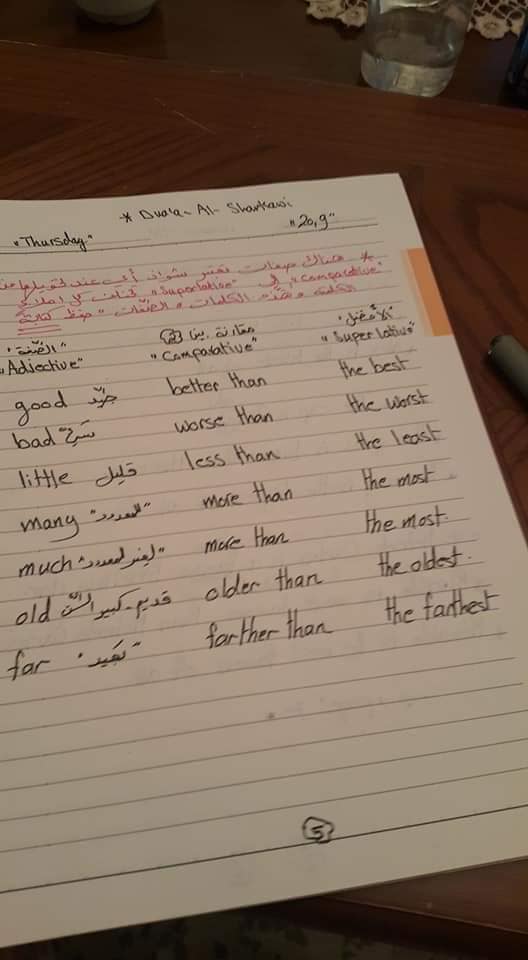 * Dua'a - Al- Sharkawi
"Thursday" "20,9"
* هناك صفات تعتبر شواذ أي عند تحويلها من
"comparative" الى "Superlative"
الكلمة وهذه الكلمات و الصفات "حفظ كتابة"
"الصّفة" مقارنة بين (2) "الأفضل"
"Adjective" "Comparative" "Superlative"
good جيّد better than the best
bad سيّئ worse than the worst
little قليل less than the least
many "للمعدود" more than the most
much "لغير لمعدود" more than the most.
old قديم - كبير السّن older than the oldest.
far "بَعيد" farther than the farthest
5